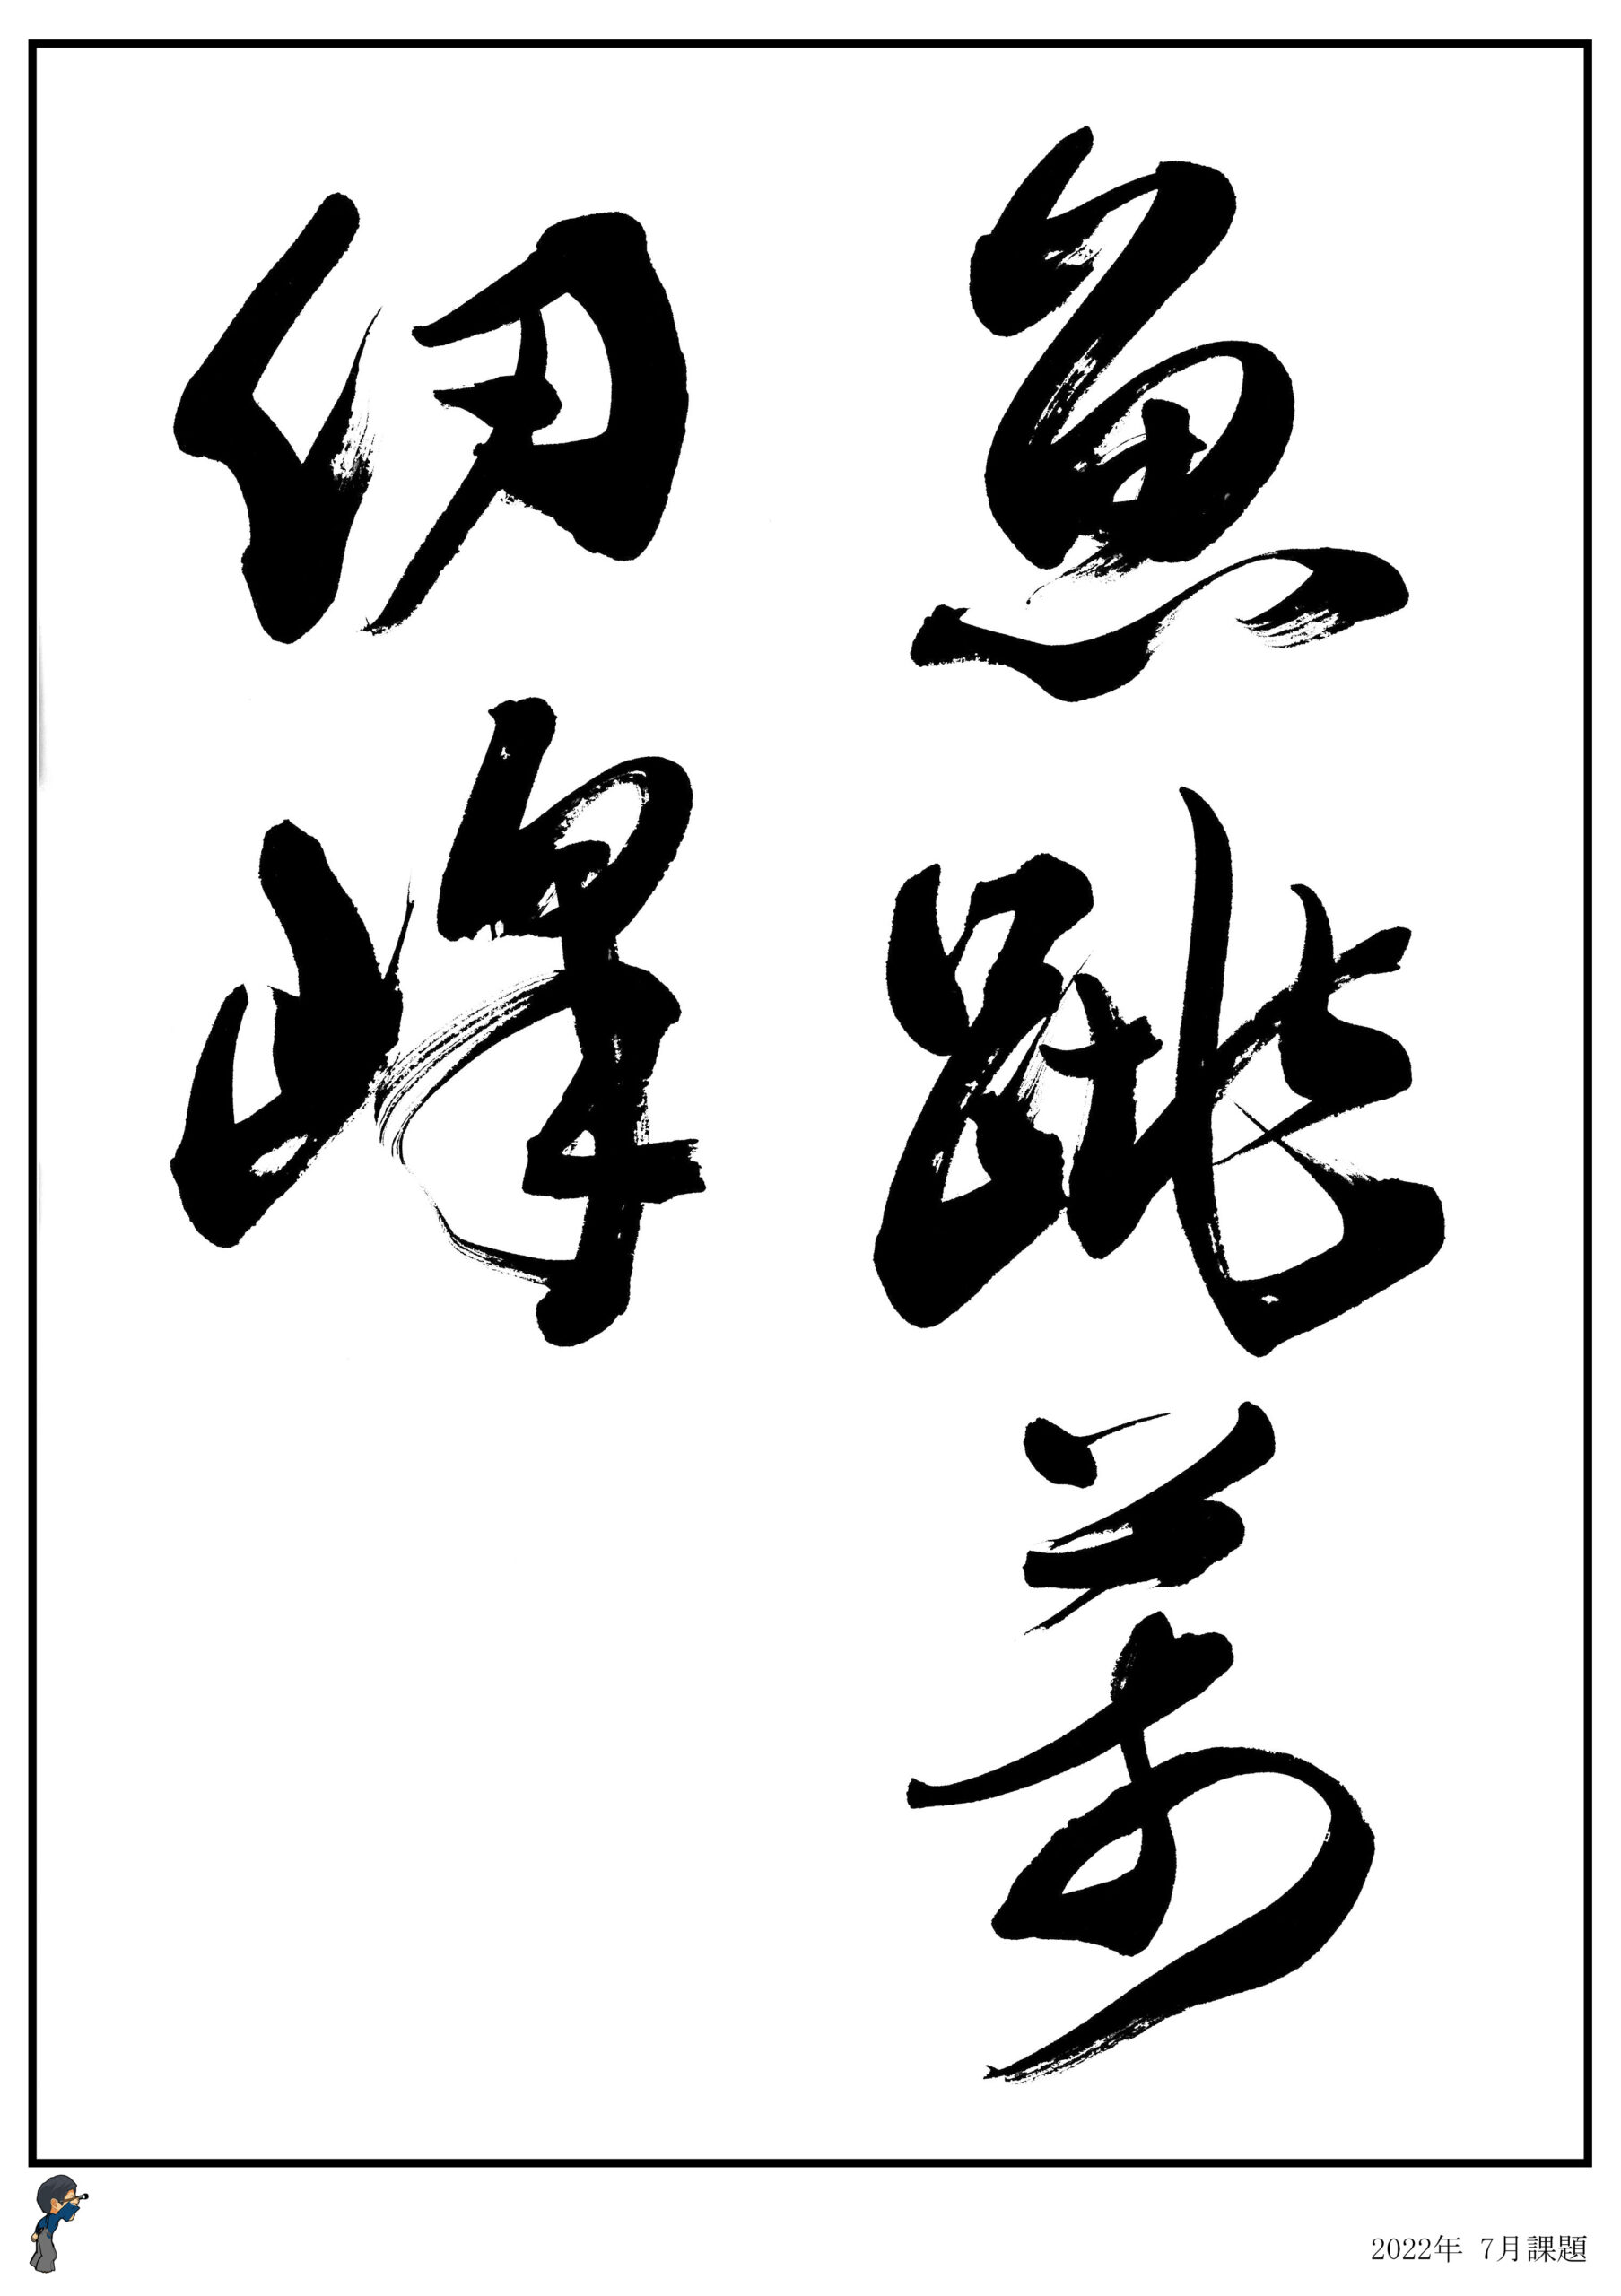 魚跳萬
仞峰
2022年 7月課題